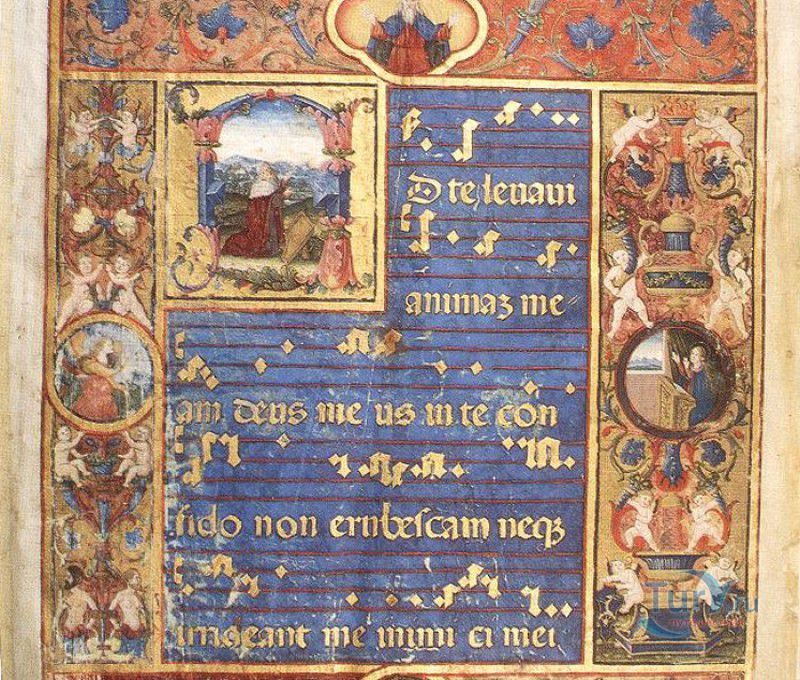 D te leuaui
animaʒ me-
am deus me us in te con
fido non erubescam neqʒ
irrideant me inimi ci mei